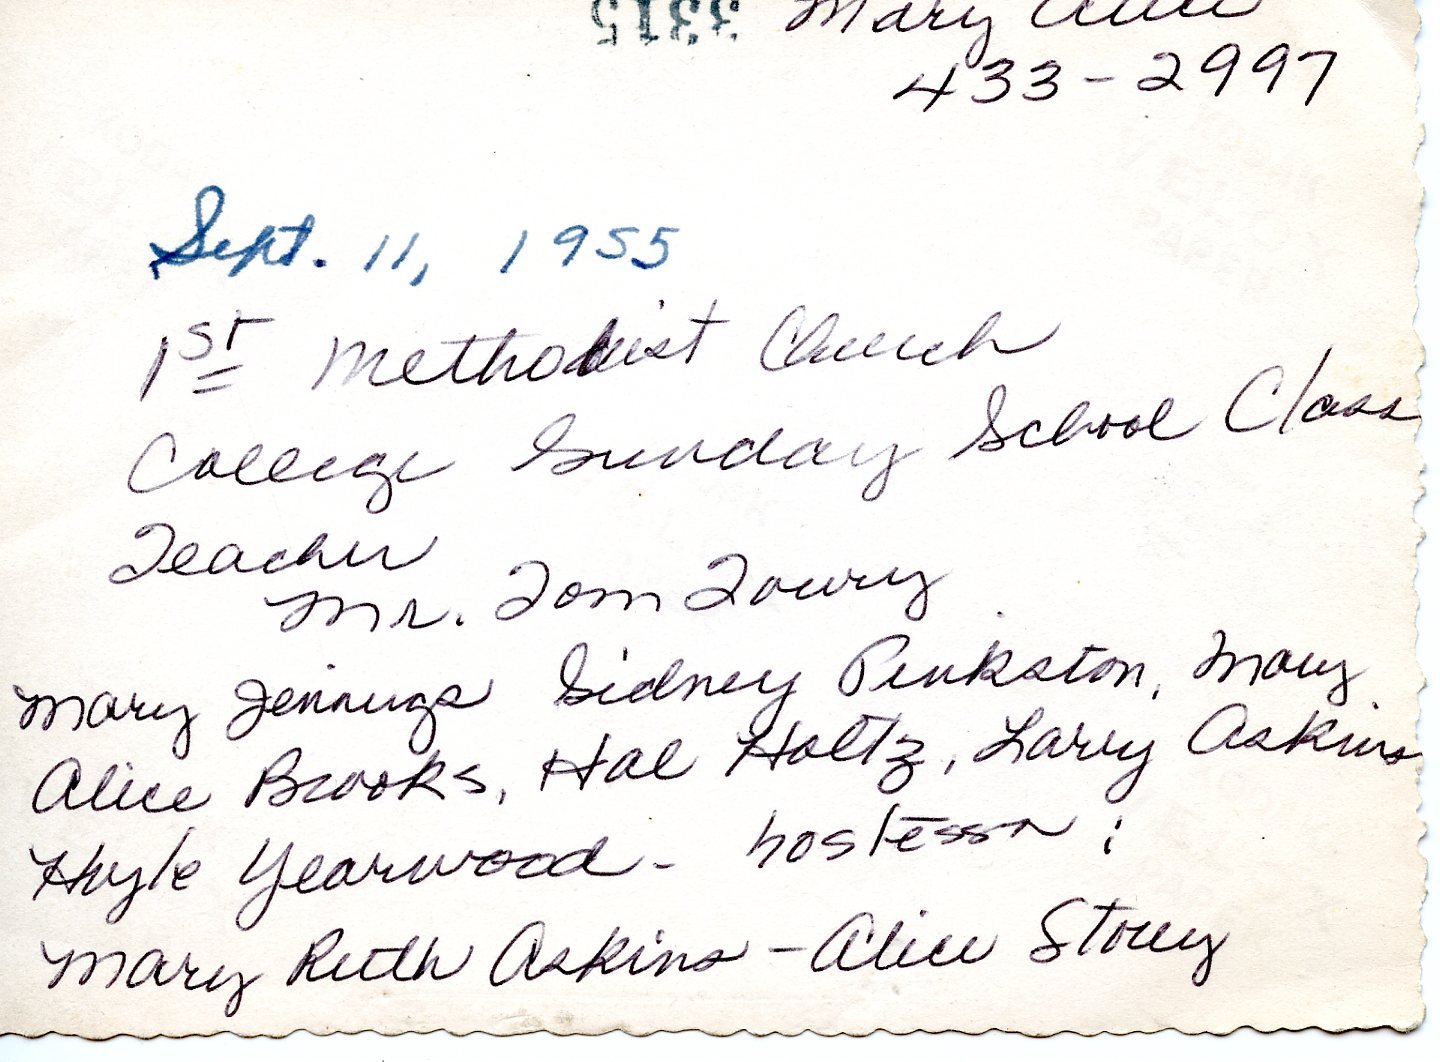 3315 Mary Alice
433-2997
Sept. 11, 1955
1st Methodist Church
College Sunday School Class
Teacher
Mr. Tom Towry
Mary Jennings Sidney Pinkston, Mary
Alice Brooks, Hal Holtz, Larry Askins
Hoyle Yearwood - hostess :
Mary Ruth Askins - Alice Storey